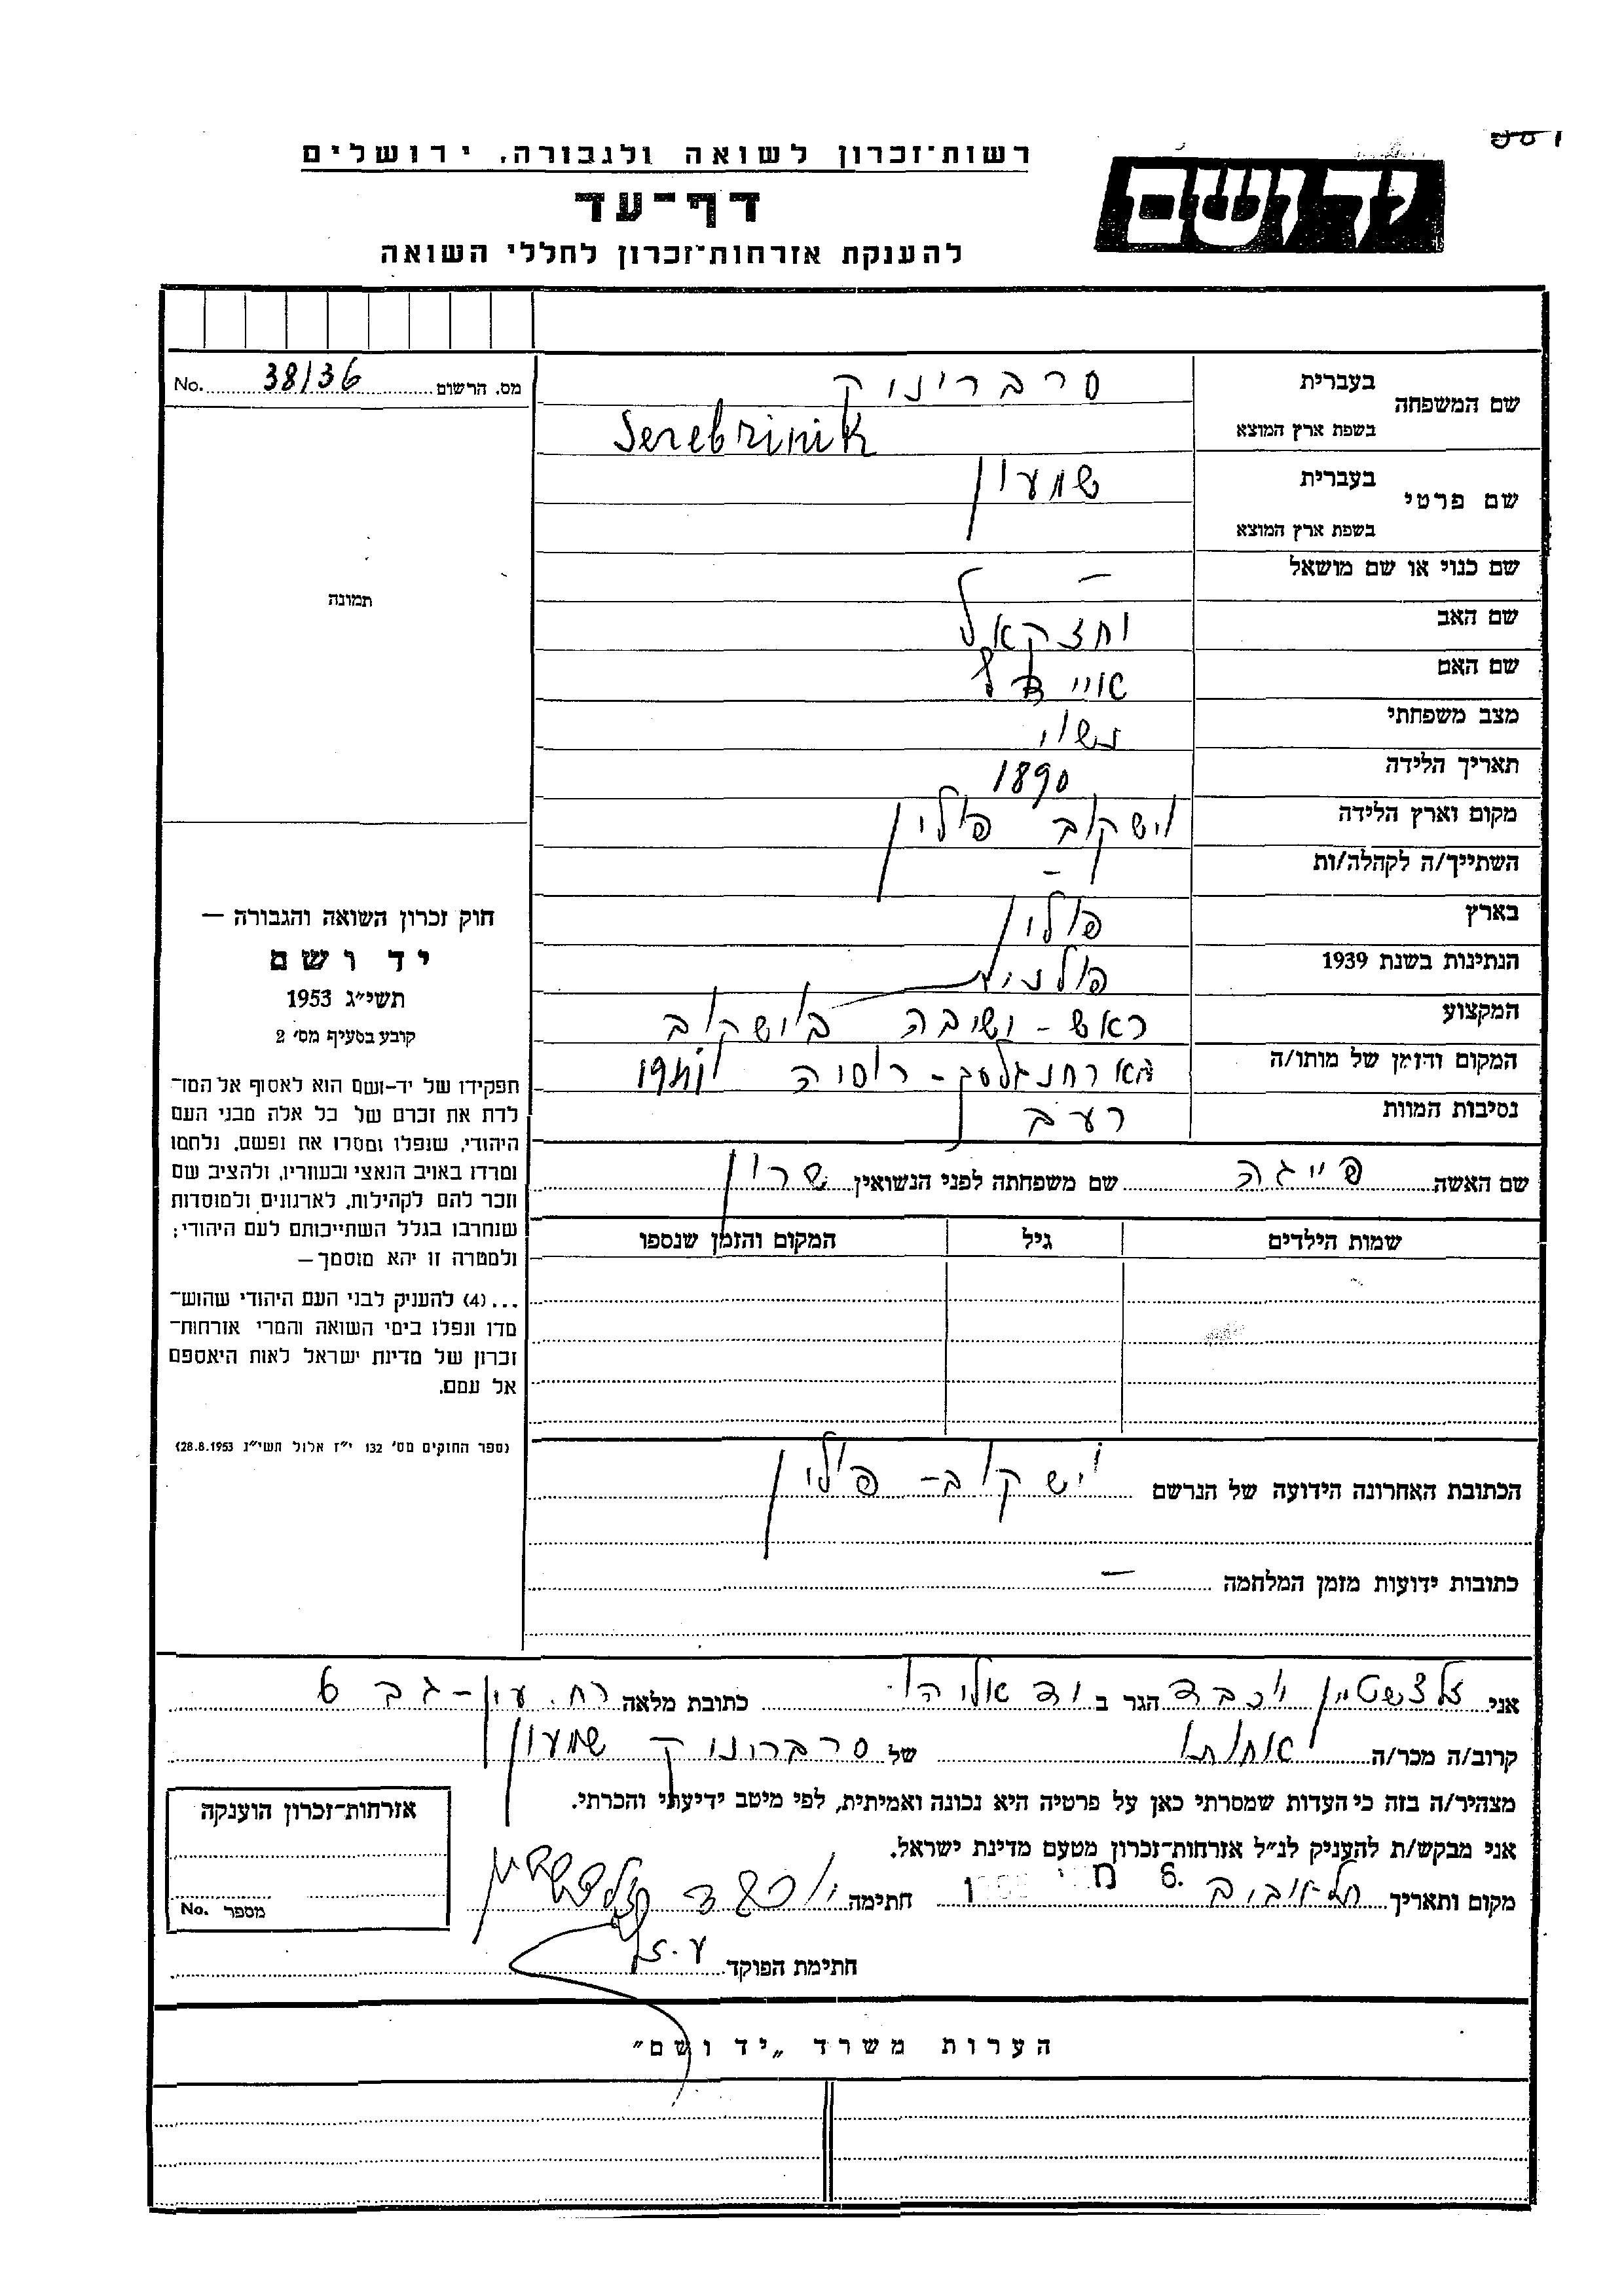 רשות־זכרון לשואה ולגבורה, ירושלים
דף־עד
להענקת אזרחות־זכרון לחללי השואה
יד ושם
מס. הרשום 38/36 No.
שם המשפחה
בעברית סרברינוק
בשפת ארץ המוצא Serebrinik
שם פרטי
בעברית שמעון
בשפת ארץ המוצא
שם כנוי או שם מושאל –
שם האב יחזקאל
שם האם
מצב משפחתי נשוי
תאריך הלידה 1890
מקום וארץ הלידה וישקוב פולין
השתייך/ה לקהלה/ות –
בארץ פולין
הנתינות בשנת 1939 פולנית
המקצוע ראש-ישיבה בוישקוב
המקום והזמן של מותו/ה רוסיה
נסיבות המוות רעב
שם האשה פייגה שם משפחתה לפני הנשואין שרון
שמות הילדים גיל המקום והזמן שנספו
הכתובת האחרונה הידועה של הנרשם וישקוב - פולין
כתובות ידועות מזמן המלחמה –
תמונה
חוק זכרון השואה והגבורה —
יד ושם
תשי״ג 1953
קובע בסעיף מס׳ 2
תפקידו של יד-ושם הוא לאסוף אל המו־
לדת את זכרם של כל אלה מבני העם
היהודי, שנפלו ומסרו את נפשם, נלחמו
ומרדו באויב הנאצי ובעוזריו, ולהציב שם
וזכר להם לקהילות, לארגונים ולמוסדות
שנחרבו בגלל השתייכותם לעם היהודי;
ולמטרה זו יהא מוסמך —
...(4) להעניק לבני העם היהודי שהוש־
מדו ונפלו בימי השואה והמרי אזרחות־
זכרון של מדינת ישראל לאות היאספם
אל עמם.
(ספר החוקים מס׳ 132 י״ז אלול תשי״ג 28.8.1953)
אני זלצשטיין יוכבד הגר ב יד אליהו כתובת מלאה רח. עין-גב 6
קרוב/ה מכר/ה אחותו של סרברינוק שמעון
מצהיר/ה בזה כי העדות שמסרתי כאן על פרטיה היא נכונה ואמיתית, לפי מיטב ידיעתי והכרתי.
אני מבקש/ת להעניק לנ״ל אזרחות־זכרון מטעם מדינת ישראל.
מקום ותאריך תל אביב חתימה יוכבד זלצשטיין
חתימת הפוקד
אזרחות־זכרון הוענקה
מספר No.
הערות משרד „יד ושם״